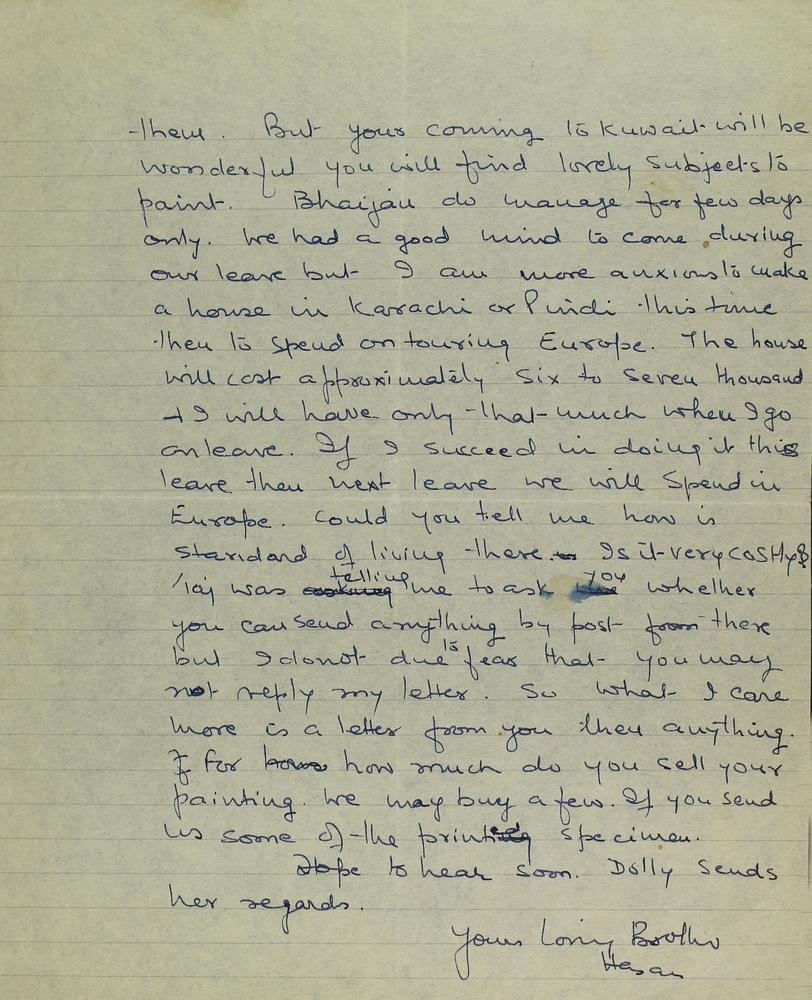 them. But your coming to Kuwait will be
wonderful you will find lovely subjects to
paint. Bhaijan do manage for few days
only. We had a good mind to come during
our leave but I am more anxious to make
a house in Karachi or Pindi this time
then to spend on touring Europe. The house
will cost approximately six to seven thousand
+ I will have only that much when I go
on leave. If I succeed in doing it this
leave then next leave we will spend in
Europe. Could you tell me how is
standard of living there. Is it very costly?
Taj was telling me to ask you whether
you can send anything by post from there
but I do not due to fear that you may
not reply my letter. So what I care
more is a letter from you then anything.
For how much do you sell your
painting. We may buy a few. If you send
us some of the printed specimen.
Hope to hear soon. Dolly sends
her regards.
Yours loving Brother
Hasan